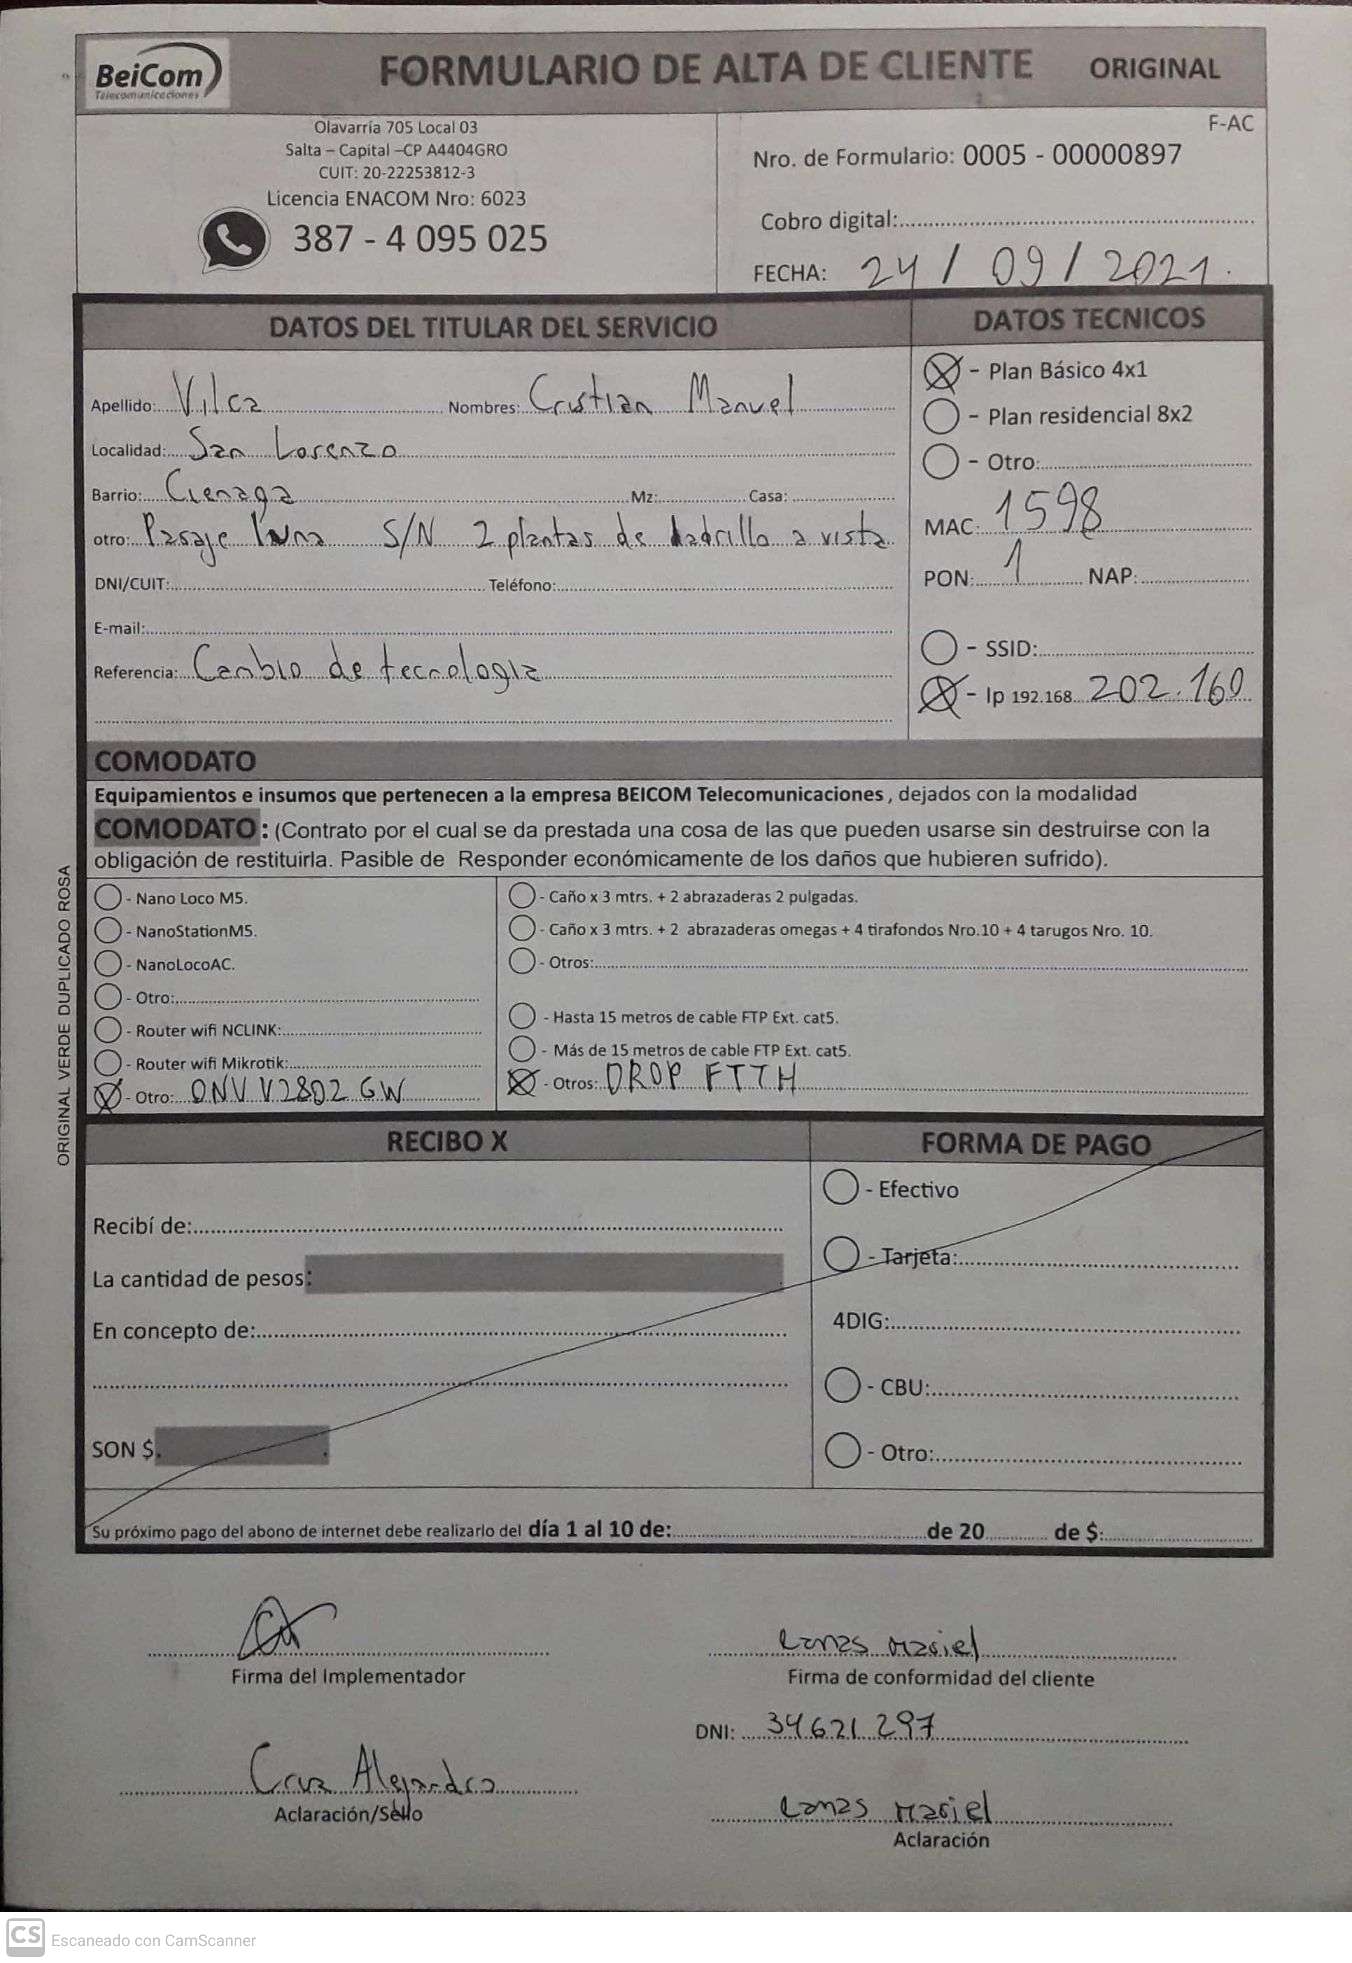 BeiCom
Telecomunicaciones
FORMULARIO DE ALTA DE CLIENTE ORIGINAL
Olavarría 705 Local 03
Salta – Capital –CP A4404GRO
CUIT: 20-22253812-3
Licencia ENACOM Nro: 6023
387 - 4 095 025
F-AC
Nro. de Formulario: 0005 - 00000897
Cobro digital:
FECHA: 24 / 09 / 2021.
DATOS DEL TITULAR DEL SERVICIO
Apellido: Vilca Nombres: Cristian Manuel
Localidad: San Lorenzo
Barrio: Cienaga Mz: Casa:
otro: Pasaje S/N 2 plantas de ladrillo a vista
DNI/CUIT: Teléfono:
E-mail:
Referencia: Cambio de tecnologia
DATOS TECNICOS
- Plan Básico 4x1
- Plan residencial 8x2
- Otro:
MAC: 1598
PON: 1 NAP:
- SSID:
- Ip 192.168. 202.160
COMODATO
Equipamientos e insumos que pertenecen a la empresa BEICOM Telecomunicaciones, dejados con la modalidad
COMODATO: (Contrato por el cual se da prestada una cosa de las que pueden usarse sin destruirse con la
obligación de restituirla. Pasible de Responder económicamente de los daños que hubieren sufrido).
- Nano Loco M5.
- NanoStationM5.
- NanoLocoAC.
- Otro:
- Router wifi NCLINK:
- Router wifi Mikrotik:
- Otro: ONU V2802 GW
- Caño x 3 mtrs. + 2 abrazaderas 2 pulgadas.
- Caño x 3 mtrs. + 2 abrazaderas omegas + 4 tirafondos Nro.10 + 4 tarugos Nro. 10.
- Otros:
- Hasta 15 metros de cable FTP Ext. cat5.
- Más de 15 metros de cable FTP Ext. cat5.
- Otros: DROP FTTH
ORIGINAL VERDE DUPLICADO ROSA
RECIBO X
Recibí de:
La cantidad de pesos:
En concepto de:
SON $.
FORMA DE PAGO
- Efectivo
- Tarjeta:
4DIG:
- CBU:
- Otro:
Su próximo pago del abono de internet debe realizarlo del día 1 al 10 de: de 20 de $:
Firma del Implementador
Cruz Alejandro
Aclaración/Sello
Lamas Mariel
Firma de conformidad del cliente
DNI: 34.621.297
Lamas Mariel
Aclaración
CS Escaneado con CamScanner